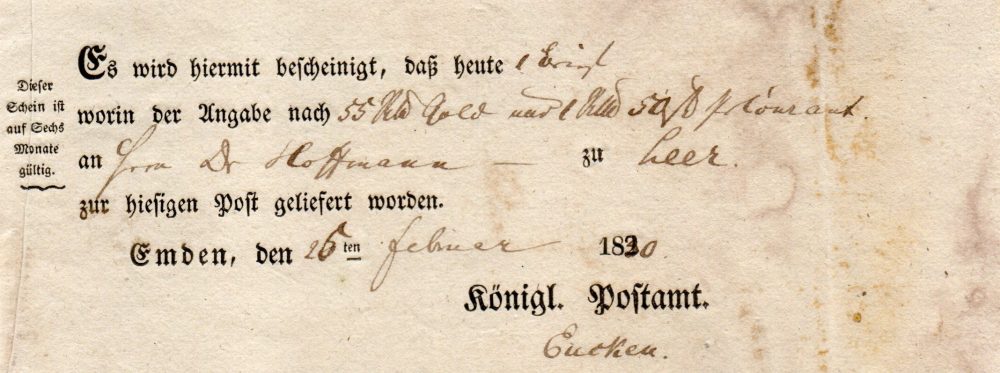 Dieser
Schein ist
auf Sechs
Monate
gültig.
Es wird hiermit bescheinigt, daß heute 1 Brief
worin der Angabe nach 55 Gold und 1 50 Courant
an Herrn Dr Hoffmann — zu Leer.
zur hiesigen Post geliefert worden.
Emden, den 26ten Februar 1830
Königl. Postamt.
Eucken.